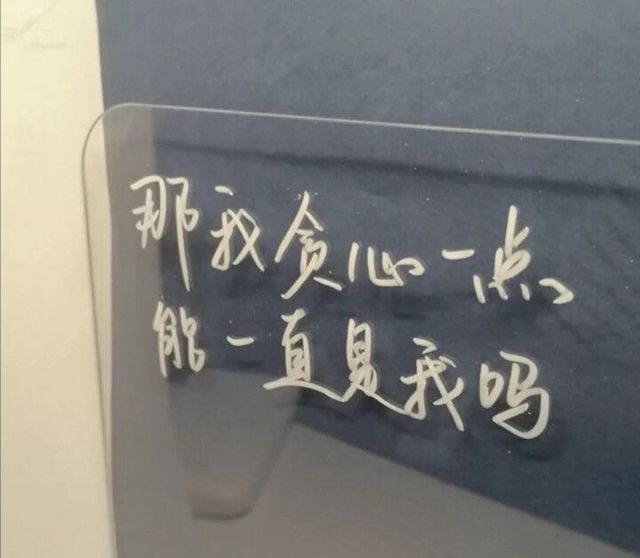 那我贪心一点
能一直是我吗